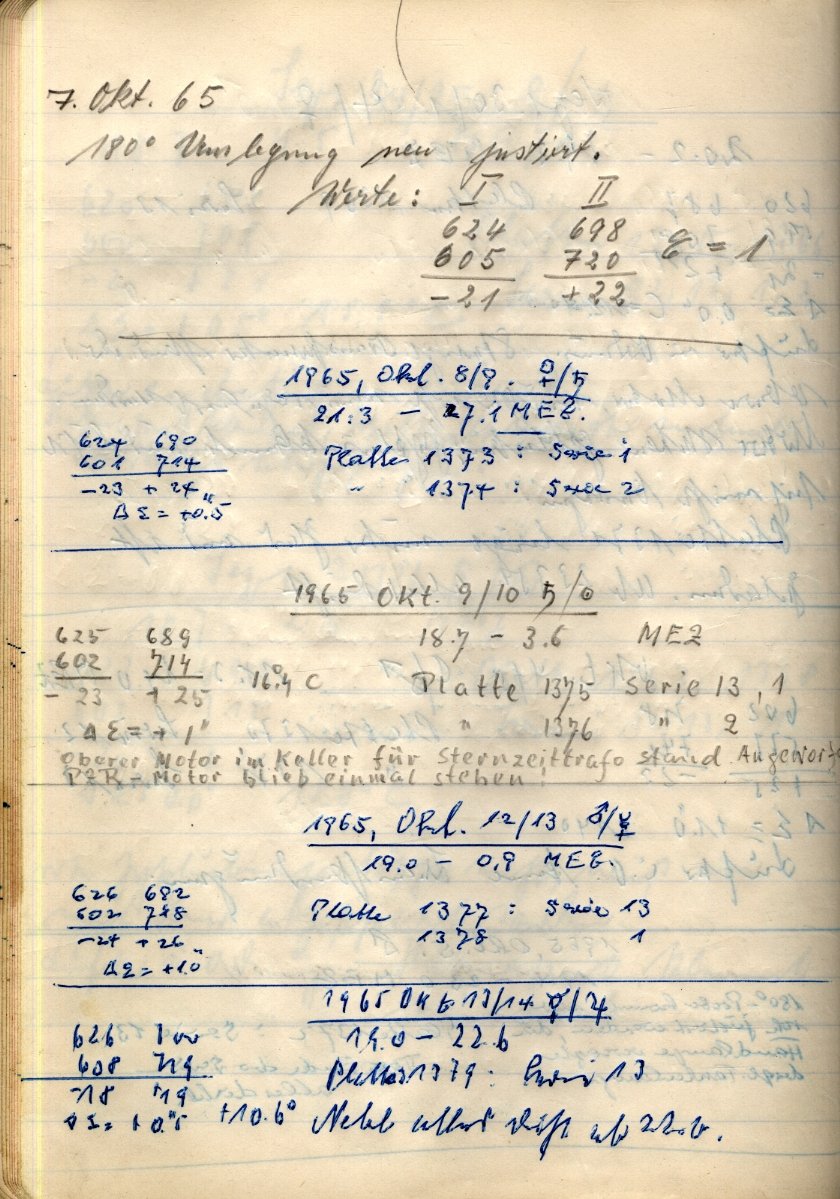 7. Okt. 65
180° Umlegung neu justiert.
Werte: I II
624 698
605 720
-21 +22
= 1
1965, Okt. 8/9. ♀/♄
21.3 — 27.1 MEZ.
624 690
601 714
-23 + 24
ΔΣ = +0.5"
Platte 1373 : Serie 1
" 1374 : Serie 2
1965 Okt. 9/10 ♄/⊙
18.7 - 3.6 MEZ
625 689
602 714
- 23 + 25
16.4° C
Platte 1375 Serie 13, 1
" 1376 " 2
ΔΣ = + 1"
oberer Motor im Keller für Sternzeittrafo stand. Angeworfen
PZR-Motor blieb einmal stehen!
1965, Okt. 12/13 ♂/☿
19.0 — 0.9 MEZ.
626 692
602 718
-24 + 26
ΔΣ = +1.0"
Platte 1377 : Serie 13
1378 1
1965 Okt 13/14 ☿/♃
19.0 — 22.6
626 700
608 719
-18 19
ΔΣ = +0.5"
Platte 1379 : Serie 13
+10.6° Nebel alles dicht ab